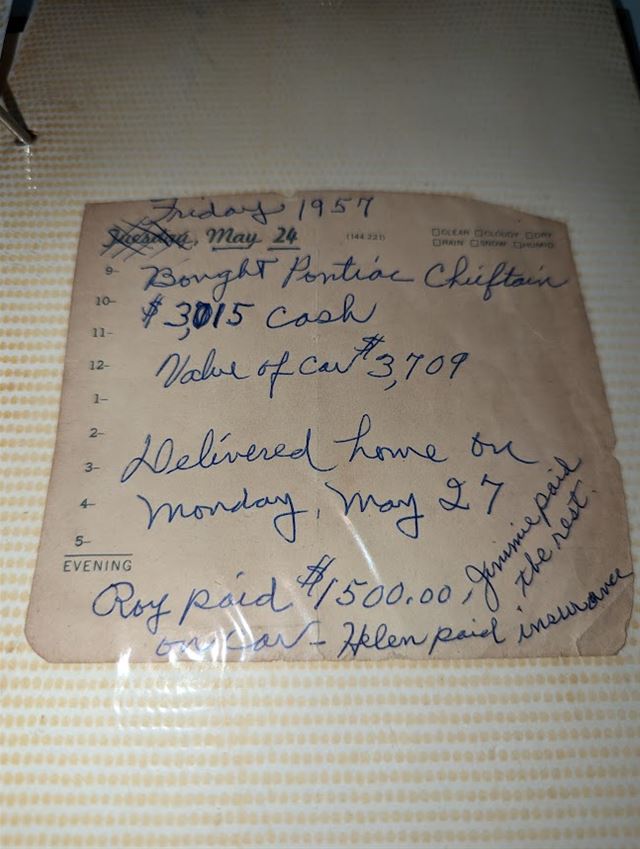 Friday 1957
Tuesday, May 24 (144-221) CLEAR CLOUDY DRY
RAIN SNOW HUMID
9- Bought Pontiac Chieftain
10- $3,015 cash
11-
12- Value of car $3,709
1-
2- Delivered home on
3-
4- Monday, May 27
5-
EVENING
Roy paid $1500.00, Jimmie paid
the rest.
on car - Helen paid insurance